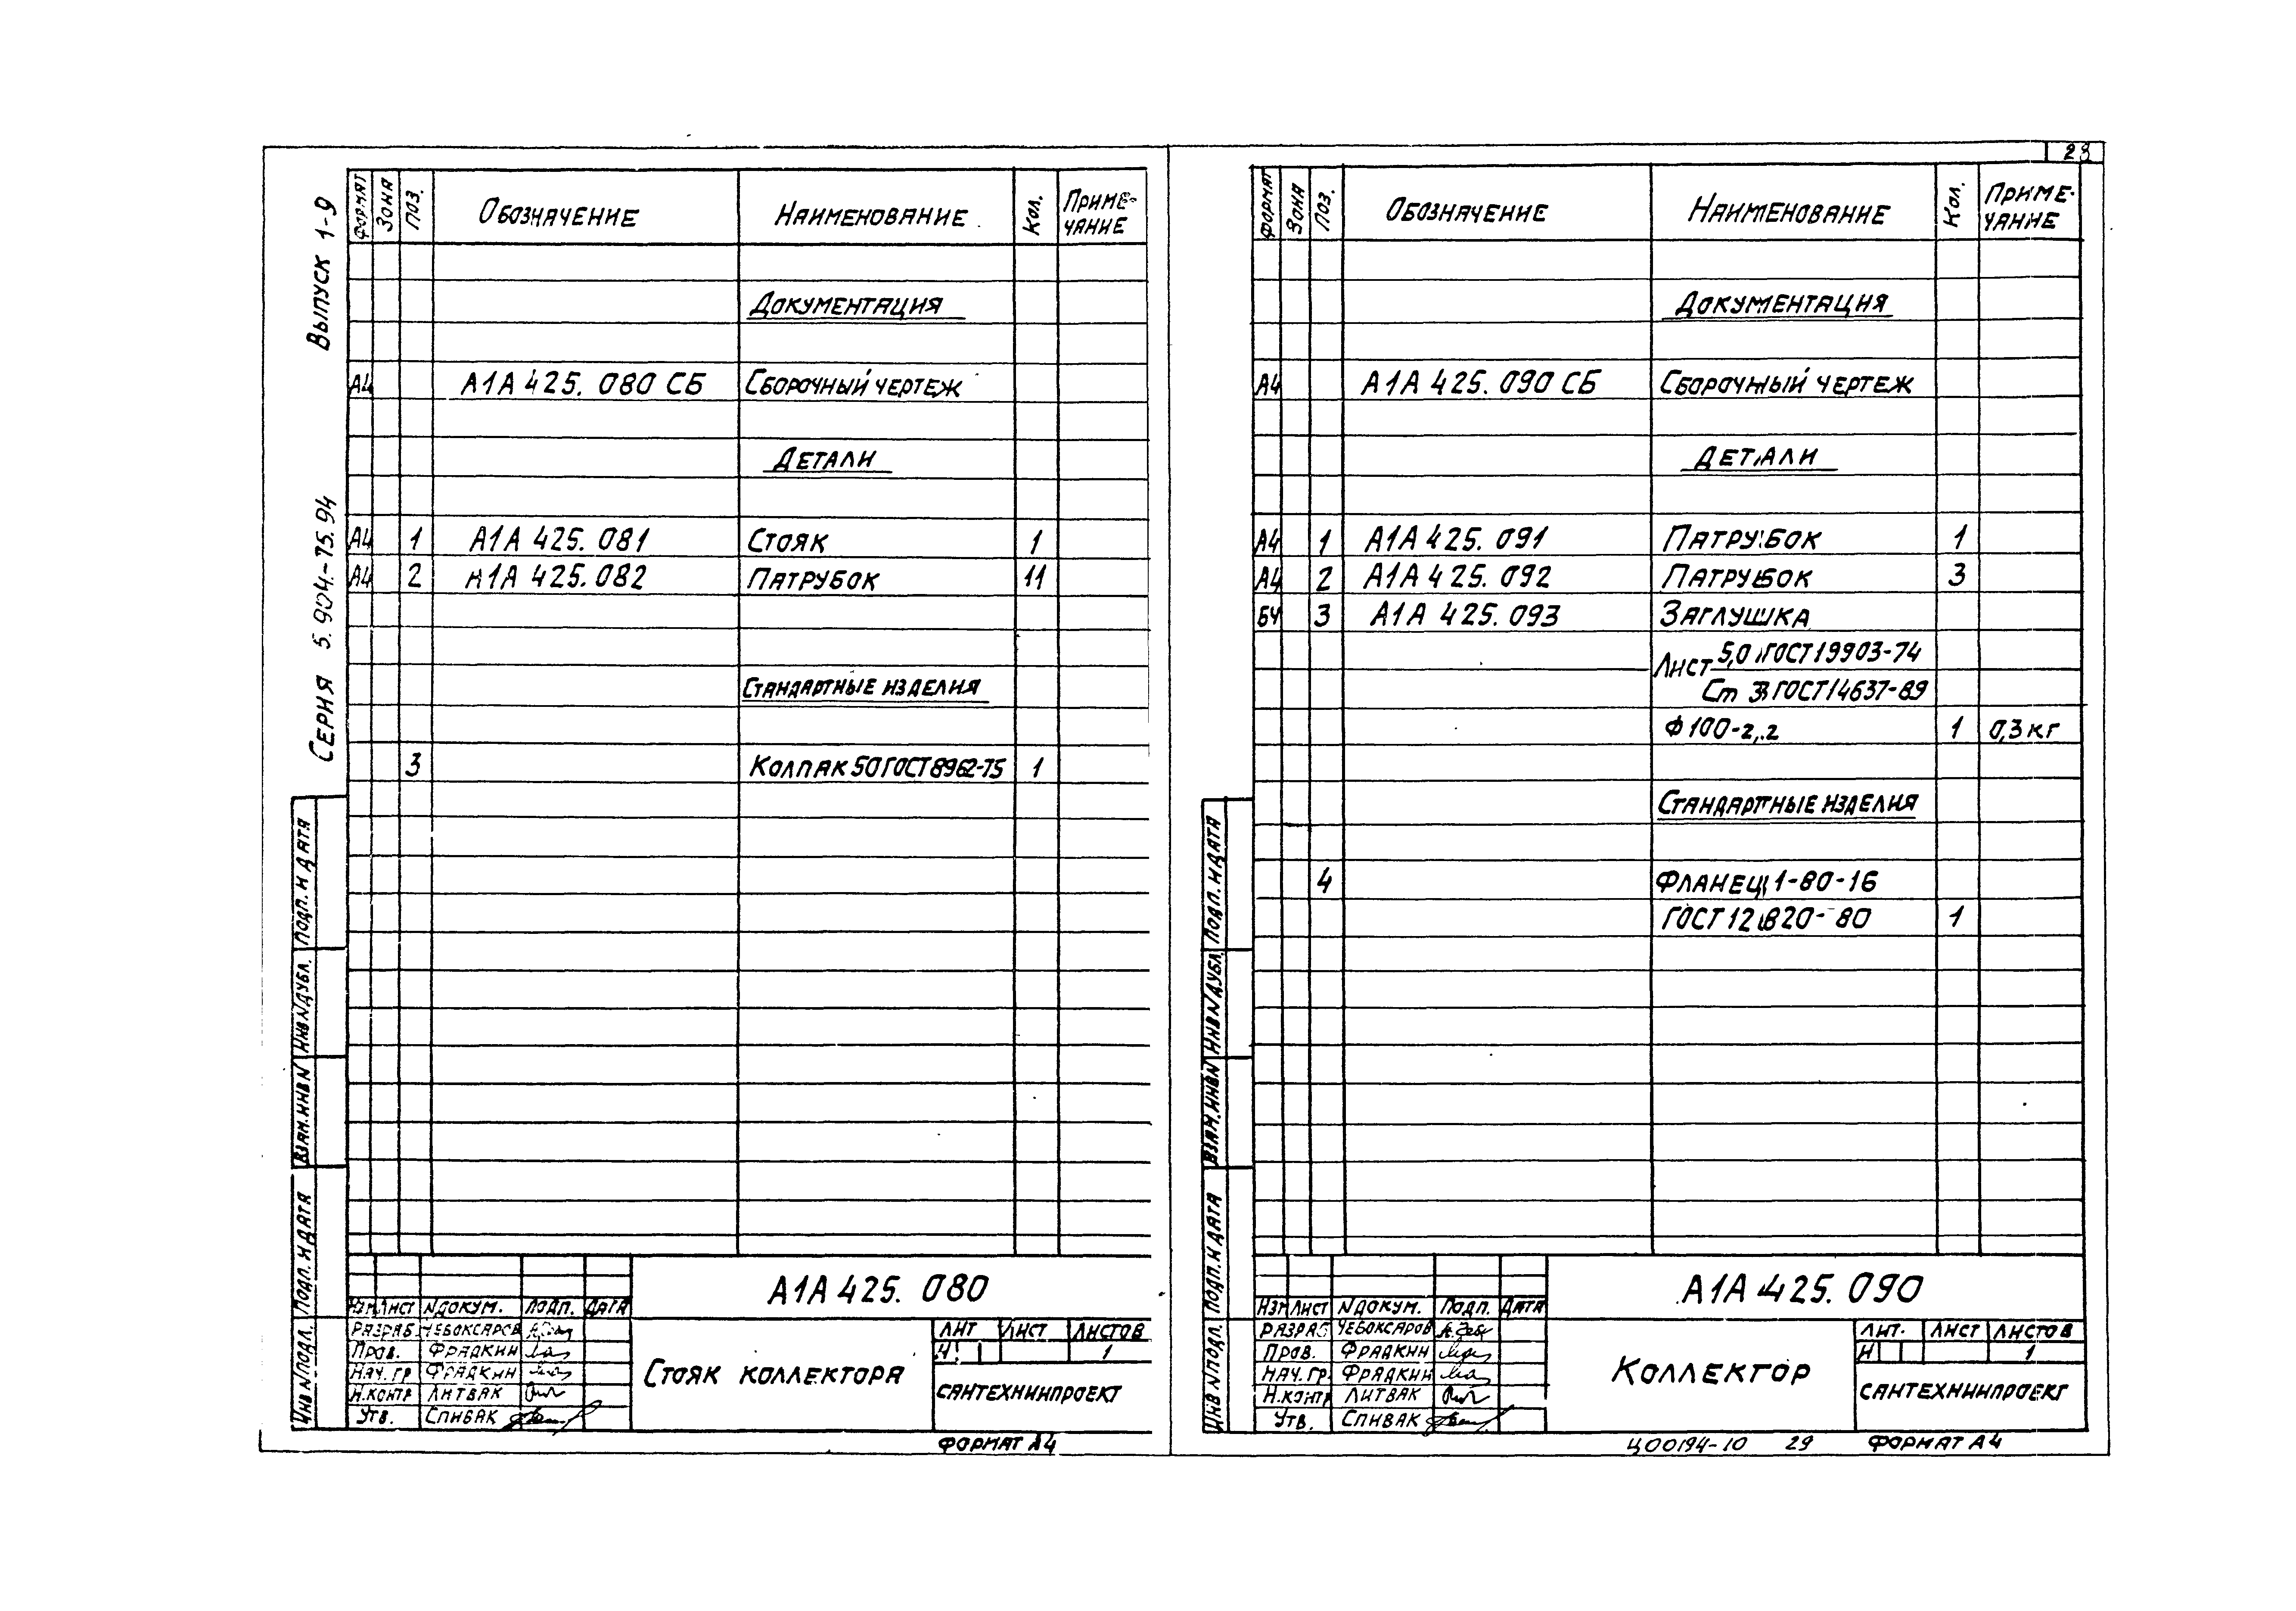 28
Выпуск 1-9
Серия 5.904-75.94
Формат Зона Поз. Обозначение Наименование Кол. Приме-
чание
Документация
А4 А1А 425. 080 СБ Сборочный чертеж
Детали
А4 1 А1А 425. 081 Стояк 1
А4 2 А1А 425. 082 Патрубок 11
Стандартные изделия
3 Колпак 50 ГОСТ 8962-75 1
Подп. и дата
Инв N дубл.
Взам. инв N
Подп. и дата
Инв N подл.
А1А 425. 080
Изм Лист N докум. Подп. Дата
Разраб Чебоксаров
Пров. Фрадкин
Нач. гр Фрадкин
Н.контр Литвак
Утв. Спивак
Стояк коллектора
Лит Лист Листов
И 1
Сантехниипроект
Формат А4
Формат Зона Поз. Обозначение Наименование Кол. Приме-
чание
Документация
А4 А1А 425. 090 СБ Сборочный чертеж
Детали
А4 1 А1А 425. 091 Патрубок 1
А4 2 А1А 425. 092 Патрубок 3
БЧ 3 А1А 425. 093 Заглушка
Лист 5,0 ГОСТ 19903-74
Ст 3 ГОСТ 14637-89
Ф 100-2,2 1 0,3 кг
Стандартные изделия
4 Фланец 1-80-16
ГОСТ 12820-80 1
Подп. и дата
Инв N дубл.
Взам. инв N
Подп. и дата
Инв N подл.
А1А 425. 090
Изм Лист N докум. Подп. Дата
Разраб Чебоксаров
Пров. Фрадкин
Нач. гр. Фрадкин
Н.контр Литвак
Утв. Спивак
Коллектор
Лит. Лист Листов
И 1
Сантехниипроект
Ц00194-10 29 Формат А4